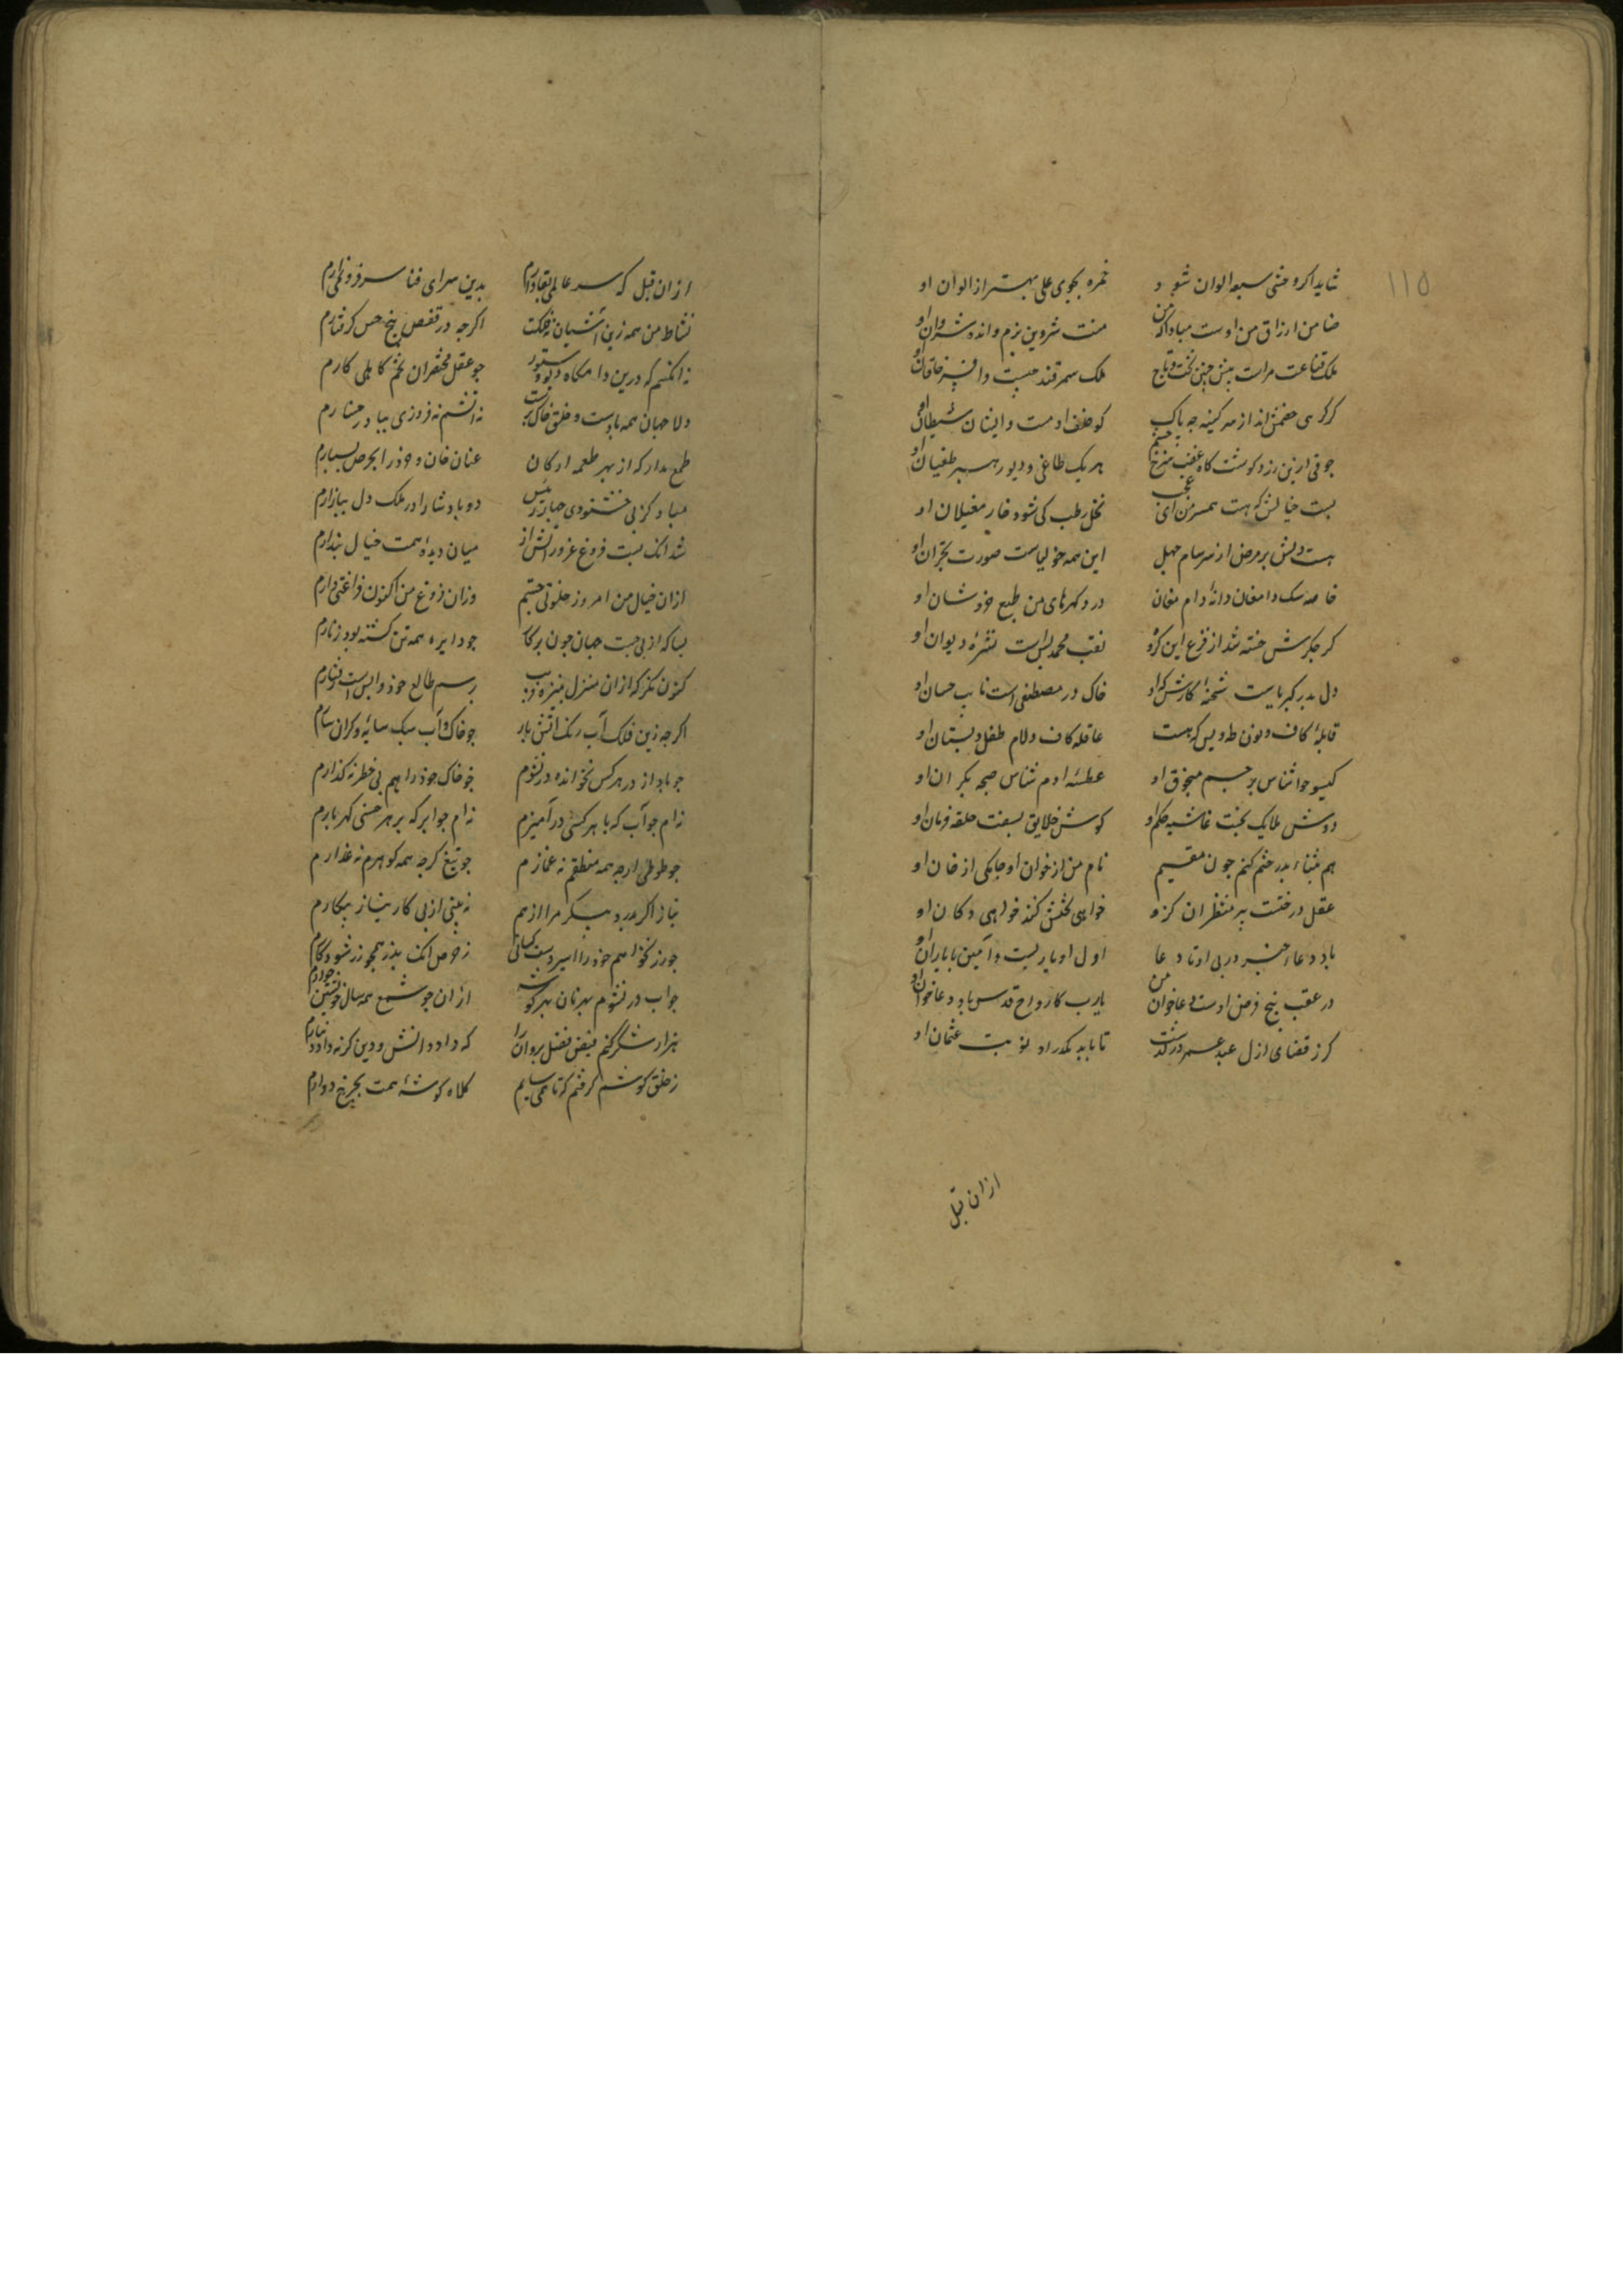 ۱۱۵
شاید اگر وحشی سبع الوان شود خمره بجوی علی بهتر از الوان او
ضامن ارزاق من اوست مبادا که من منت شروین برم وانده شروان او
ملک قناعت مراست پیش چنین تخت و تاج ملک سمرقند چیست وافسر خاقان او
کرکسی خصمش اند از سر کینه چه باک کو خلف ادمست وایشان شیطان او
جوقی ازین زرد کوشت کاه غضب سرخ چشم هر یک طاغی و دیو رهبر طغیان او
بست خیالش که هست همسر من ای عجب نخل رطب کی شود خار مغیلان او
هست دلش پر مرض از سرسام جهل این همه ماخولیاست صورت بحران او
خاصه سک دامغان دانه دام مغان دزد کهرهای من طبع خزدشان او
کر جکرش خسته شد از فزع این کرو نعت محمد بس است نشره دیوان او
دل بدر کبریاست شحنه کارش که او خاک در مصطفی است نایب حسان او
قابله کاف و نون طه و یس که هست عاقله کاف و لام طفل دبستان او
کیسو حوا شناس پرچم منجوق او عطسه ادم شناس صبحه بکران او
دوش ملایک بخبت غاشیه حکم او کوش خلایق بسفت حلقه فرمان او
هم بثناء بدر ختم کنم چون مقیم نام من از خوان او جامکی از خان او
عقل درختست پیر منتظر ان کزو خواهی تختش کند خواهی دکان او
باد دعاء خیر در بی او تا دعا اول او یارب است و آمین با یاران او
در عقب پنج فرض اوست دعا خوان من یارب کارواح قدس باد دعا خوان او
کر ز قضای ازل عهد عمر درکذشت تا بابد مکذراد نوبت عثمان او
ازان قبل
ازان قبل که سر عالم بقا دارم بدین سرای فنا سر فرو نمی آرم
نشاط من همه زین آشیان نه فلکست اگرچه در قفص پنج حس کرفتارم
نه انکسم که درین دامکاه دیو و ستور چو عقل مختصران تخم کاهلی کارم
دلا جهان همه بادست و خلق خاک پرست نه آتشم که فروزی بباد رخسارم
طمع مدار که از بهر طعمه ارکان عنان جان و خرد را بحرص بسپارم
مباد کز بی خشنودی چهار رئیس دو پادشا را در ملک دل بیازارم
شد انک بست فروغ غرور آتش از میان دیده همت خیال پندارم
ازان خیال من امروز خلوتی جستم وزان فروغ من اکنون فراغتی دارم
بسا که از بی جست جهان چون پرکار چو دایره همه تن کشته بود زنارم
کنون نکر که ازان منزل برسم طالع خود واپس است رفتارم
اگرچه زین فلک آب رنک آتش بار چو خاک و آب سبک سایه و کران سارم
چو باد از در هر کس نخوانده در نشوم چو خاک خود را هم بی خطر نه کذارم
نه ام چو آب که با هر کسی درآمیزم نه ام چو ابر که بر هر خسی کهر بارم
چو طوطی ارچه همه منطقم نه غمازم چو تیغ کرچه همه کوهرم نه غدارم
نیاز اگر بدرد پیکر مرا از هم نه بینی از بی کار نیاز پیکارم
چو رز نخواهم خود را اسیر دست کسان نه حرص انک بذر همچو زر شود کارم
چو آب در نشوم بهر نان بهر کوشه ازان چو شمع همه سال خویشتن خوارم
هزار شکر کنم فیض فضل یزدان را که داد دانش و دین کر نداد دینارم
ز خلق کوشه کرفتم که تا همی سایم کلاه کوشه همت بچرخ دوارم